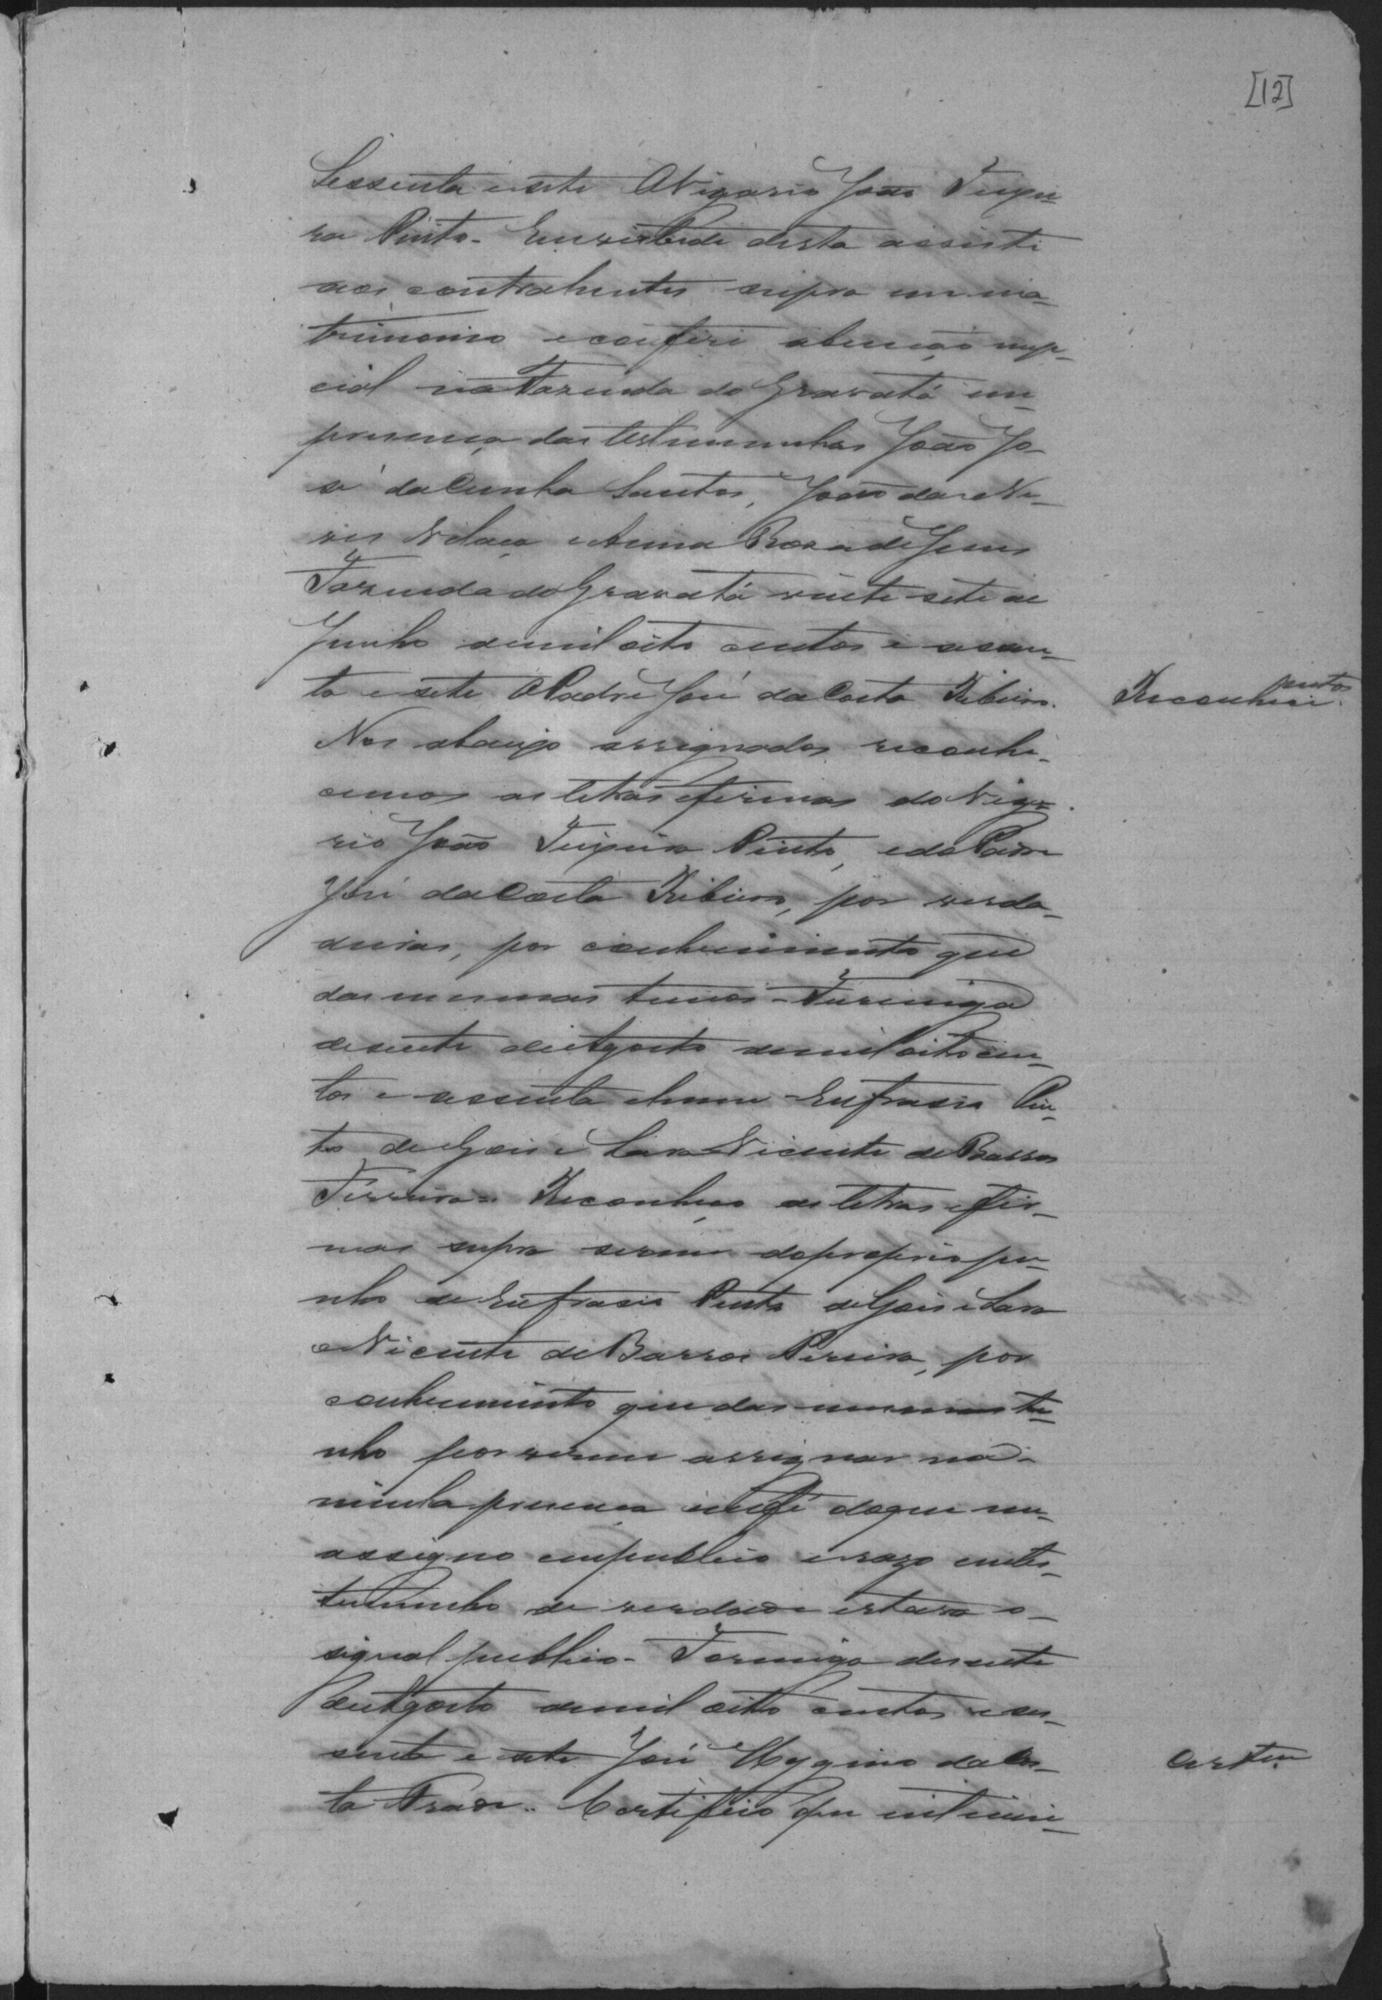 [12]
Sessenta e sete O Vigario João Teixei-
ra Pinto - Em virtude desta assisti
aos contrahentes supra em ma-
trimonio e conferi a benção nup-
cial na Fazenda do Gravatá em
presença das testemunhas João Jo-
sé da Cunha Santos, João das Ne-
ves e Anna Roza de Jesus
Fazenda do Gravatá vinte sete de
Junho de mil oito centos e sessen-
ta e sete O Padre José da Costa Ribeiro.
Reconheci-
mentos
Nos abaixo assignados reconhe-
cemos as letras e firmas do Viga-
rio João Teixeira Pinto, e do Padre
José da Costa Ribeiro, por verda-
deiras, por conhecimento que
das mesmas temos - Formiga
de sete de Agosto de mil oito cen-
tos e sessenta e Eufrasio Pin-
to de Goes e Lara Vicente de Barros
Ferreira - Reconheço as letras e fir-
mas supra serem do proprio pu-
nho de Eufrasio Pinto de Goes e Lara
e Vicente de Barros Pereira, por
conhecimento que das mesmas te-
nho por serem assignar na
minha presença em fé do que me
assigno em publico e razo em tes-
temunho de verdade estava o
signal publico - Formiga de sete
de Agosto de mil oito centos e ses-
senta e sete José Hygino da Cos-
ta Prado .. Certifico que intimi-
Certam